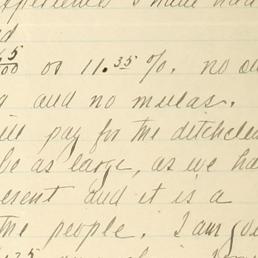 experience I have had
d
65/100 or 11.35 %. no ou
g and no mulas.
ill pay for the ditchclea
be as large, as we ha
esent and it is a
the people. I am go